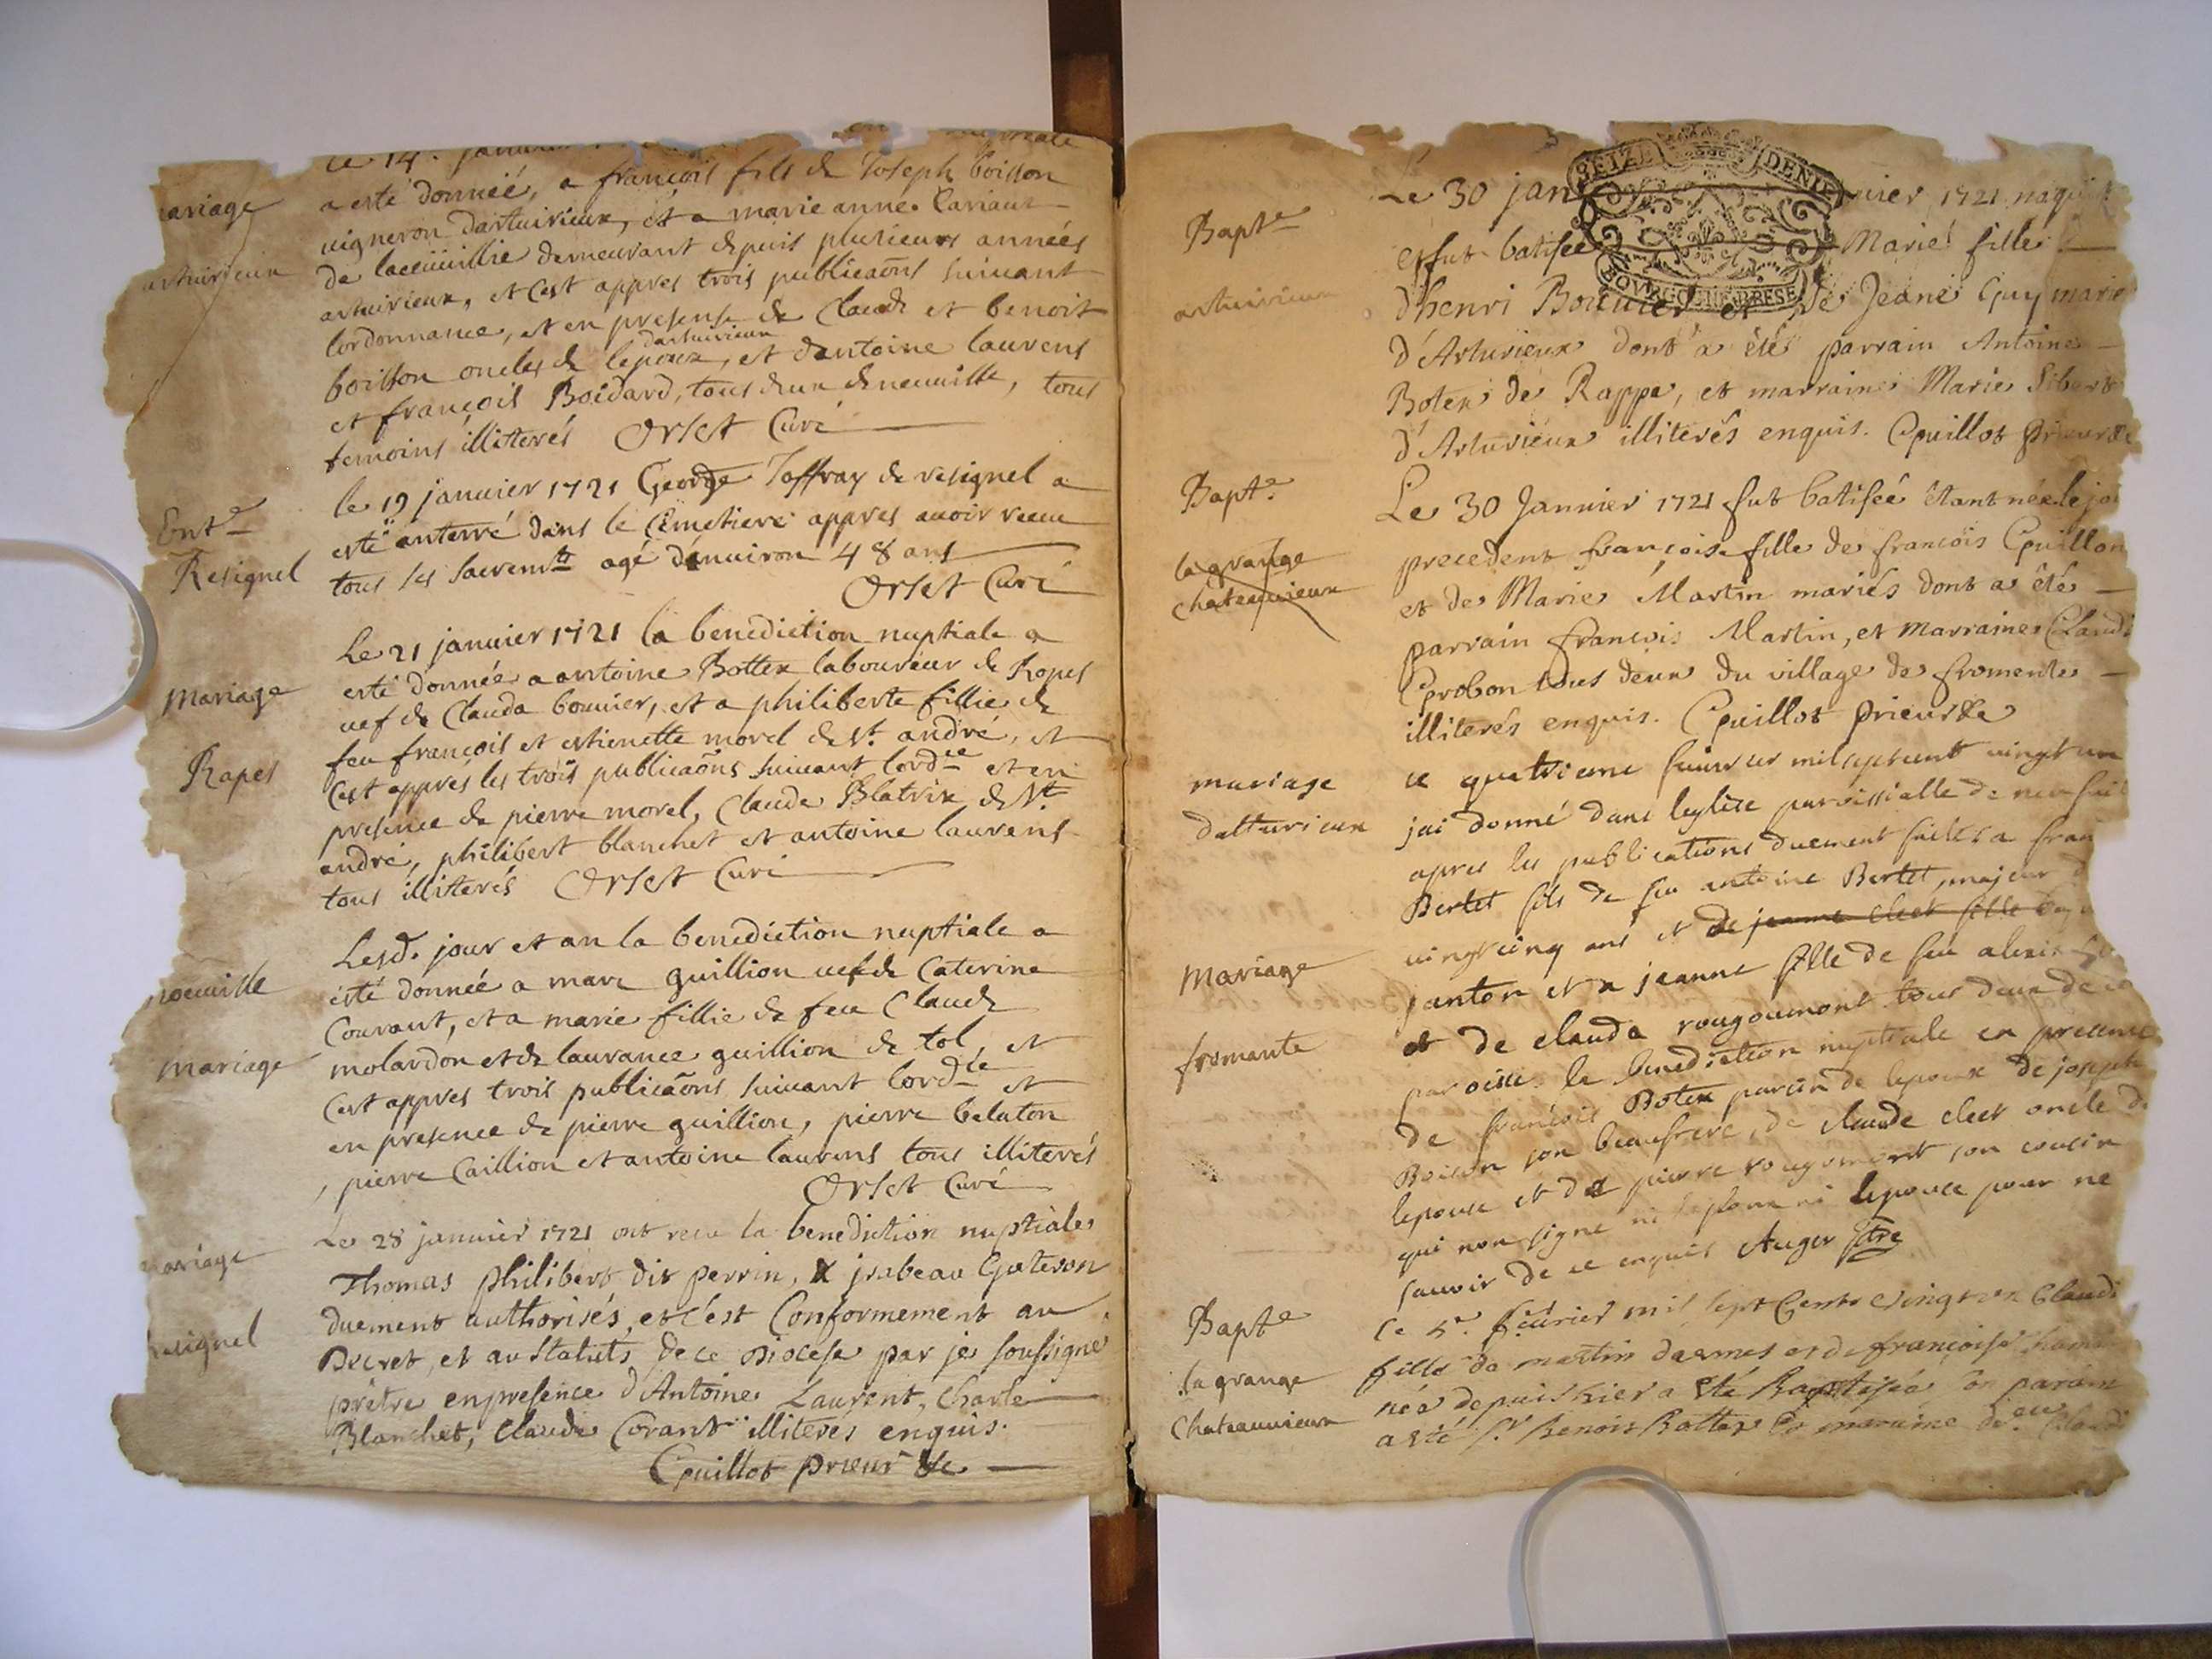 ce 14. janvier nuptiale
mariage
a esté donnéé, a francois fils de Joseph boisson
uigneron dartuirieux, et a marie anne Cariaut
artuirieux
de demeurant depuis plusieurs années
artuirieux, et cest appres trois publicaõns suiuant
lordonnance, et en presense de Claude et benoit
dartuirieux
boisson oncles de lepoux, et dantoine laurens
et francois Boidard, tous deux de neuuille, tous
temoins illiterés Orset Curé
le 19 januier 1721 George Joffray de resignel a
Ent.e
esté anterré dans le Cimetiere appres auoir receu
Resignel
tous les sacrem.ts agé dénuiron 48 ans
Orset Curé
Le 21 januier 1721 la benediction nuptiale a
Mariage
esté donnée a antoine Bottex laboureur de Ropes
uef de Clauda bouuier, et a philiberte fillie de
feu francois et estienette morel de st. andré, et
Rapes
Cest appres les trois publicaõns suiuant lord.ce et en
presence de pierre morel, Claude Blatrix de St.
andré, philibert blanchet et antoine laurens
tous illiterés Orset Curé
Lesd. jour et an la benediction nuptiale a
noeuille
esté donnée a marc guillion uef de Caterine
Courant, et a marie fillie de feu Claude
mariage
molardon et de laurance guillion de tol, et
cest appres trois publicaõns suiuant lord.ce et
en presence de pierre guillion, pierre belaton
, pierre Caillion et antoine laurens tous illiterés
Orset Curé
Le 28 januier 1721 ont receu la benediction nuptiale
mariage
Thomas philibert dit perrin, & jsabeau Guteron
duement authorisés, et c'est Conformement au
resignel
Decret, et au statuts de ce Diocese par je soussigné
prêtre en presence d'Antoine Laurent, Charle
Blanchet, Claude Corant illiterés enquis.
Guillot prieur &c
SEIZE DENIE
Le 30 jan uier 1721 naquit
Bapt.e
et fut batisée Marie fille
BOVRGOGNE BRESE
artuirieux
d'henri Bouuier et de Jeane Guy marie
d'Arturieux dont a été parrain Antoine
Botex de Rappe, et marraine Marie Sibert
d'Arturieux illiterés enquis. Guillot prieur &c
Bapt.e
Le 30 Januier 1721 fut batisée étant née le jo
la grange
precedent françoise fille de francois Guillon
chateauuieux
et de Marie Martin mariés dont a été
parrain francois Martin, et marraine Claud
Grobon tous deux du village de fromente
illiterés enquis. Guillot prieur &c
mariage
ce quatrieme feurier mil sept cent uingt un
dalturieux
jai donné dans leglise paroissialle de
apres les publications duement faites a fran
Bertet fils de feu antoine Bertet, majeur d
uingt cinq ans et de jeanne fille
mariage
janton et a jeanne fille de feu alexis
fromante
et de clauda rougoumont tous deux de
paroisse la benediction nuptiale en presence
de francois Botex parrin de lepoux de joseph
Boison son beaufrere, de claude cleet oncle d
lepouse et de pierre rougomont son cousin
qui non signe ni lepoux ni lepouse pour ne
sauoir de ce enquis Auger ptre
Bapt.e
le 5.e féurier mil sept Cents Vingt un Claud
la grange
fille de martin daesmes et de francoise
née depuis hier a eté Baptiséé son parain
Chateauuieux
a eté S.r Benoit Bottex et marraine